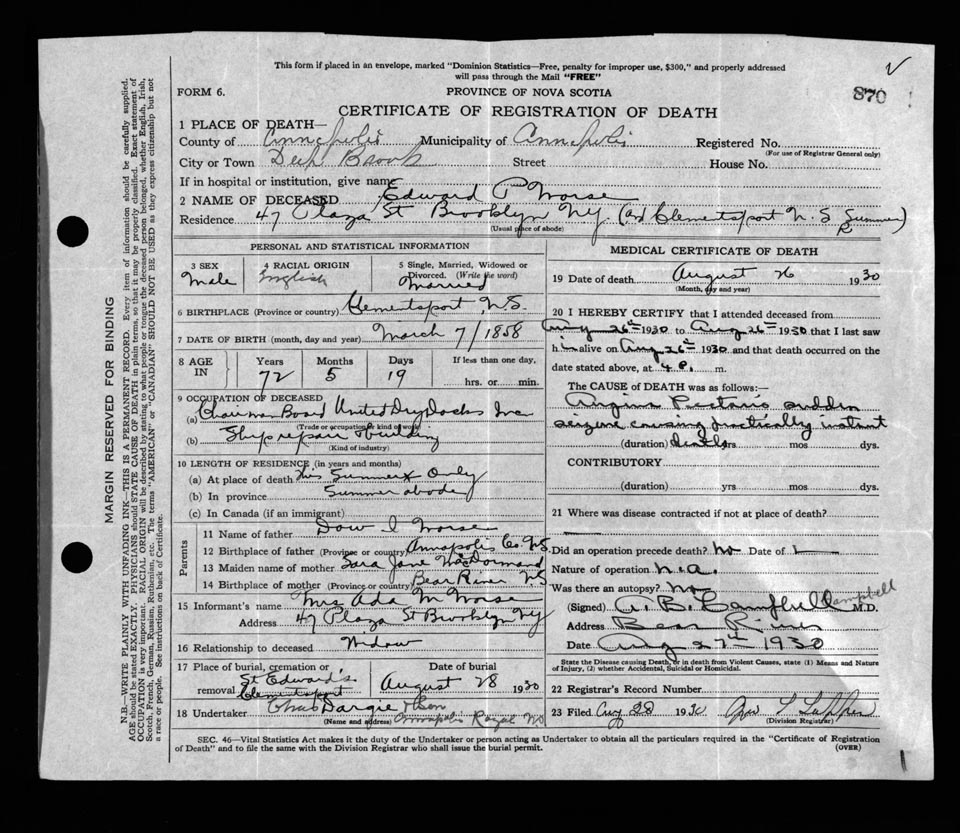 This form if placed in an envelope, marked "Dominion Statistics—Free, penalty for improper use, $300," and properly addressed
will pass through the Mail "FREE"
870
FORM 6.
PROVINCE OF NOVA SCOTIA
CERTIFICATE OF REGISTRATION OF DEATH
1 PLACE OF DEATH—
County of Annapolis Municipality of Annapolis Registered No.
(For use of Registrar General only)
City or Town Deep Brook Street House No.
If in hospital or institution, give name
2 NAME OF DECEASED Edward P Morse
Residence 47 Plaza St Brooklyn NY. (and Clementsport N. S Summer)
(Usual place of abode)
PERSONAL AND STATISTICAL INFORMATION
3 SEX Male
4 RACIAL ORIGIN English
5 Single, Married, Widowed or Divorced. (Write the word) Married
6 BIRTHPLACE (Province or country) Clementsport, N.S.
7 DATE OF BIRTH (month, day and year) March 7/1858
8 AGE IN
Years 72 Months 5 Days 19
If less than one day,
hrs. or min.
9 OCCUPATION OF DECEASED
(a) Chairman Board United Dry Docks Inc
(Trade or occupation or kind of work)
(b) Ship repair & building
(Kind of industry)
10 LENGTH OF RESIDENCE (in years and months)
(a) At place of death This Summer Only
(b) In province Summer abode
(c) In Canada (if an immigrant)
Parents
11 Name of father Dow I Morse
12 Birthplace of father (Province or country) Annapolis Co. N.S.
13 Maiden name of mother Sara Jane MacDormand
14 Birthplace of mother (Province or country) Bear River N S
15 Informant's name Mrs Ada M Morse
Address 47 Plaza St Brooklyn Ny
16 Relationship to deceased Widow
17 Place of burial, cremation or removal St Edward's, Clementsport
Date of burial August 28 1930
18 Undertaker Chas Dargie & Son
(Name and address) Annapolis Royal NS
MEDICAL CERTIFICATE OF DEATH
19 Date of death August 26 1930
(Month, day and year)
20 I HEREBY CERTIFY that I attended deceased from
Aug 26th 1930 to Aug 26th 1930 that I last saw
him alive on Aug 26th 1930 and that death occurred on the
date stated above, at 4 P. m.
The CAUSE of DEATH was as follows:—
Angina Pectoris sudden
seizure causing practically instant
(duration) death yrs mos dys.
CONTRIBUTORY
(duration) yrs mos dys.
21 Where was disease contracted if not at place of death?
Did an operation precede death? No Date of
Nature of operation n.a.
Was there an autopsy? No
(Signed) A. B. Campbell Campbell M.D.
Address Bear River
Date Aug 27th 1930
State the Disease causing Death, or in death from Violent Causes, state (1) Means and Nature
of Injury, (2) whether Accidental, Suicidal or Homicidal.
22 Registrar's Record Number
23 Filed Aug 28 1930
(Division Registrar)
SEC. 46—Vital Statistics Act makes it the duty of the Undertaker or person acting as Undertaker to obtain all the particulars required in the "Certificate of Registration
of Death" and to file the same with the Division Registrar who shall issue the burial permit.
(OVER)
MARGIN RESERVED FOR BINDING
N.B.—WRITE PLAINLY WITH UNFADING INK—THIS IS A PERMANENT RECORD. Every item of information should be carefully supplied.
AGE should be stated EXACTLY. PHYSICIANS should STATE CAUSE OF DEATH in plain terms, so that it may be properly classified. Exact statement of
OCCUPATION is very important. RACIAL ORIGIN will be described by stating to what people or tongue the deceased person belonged, whether English, Irish,
Scotch, French, German, Russian, Ruthenian, etc. The terms "AMERICAN" or "CANADIAN" SHOULD NOT BE USED as they express citizenship but not
a race or people. See instructions on back of Certificate.